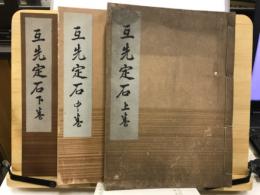 互先定石上巻
互先定石中巻
互先定石下巻